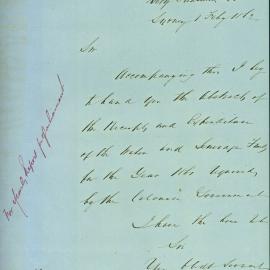 Sydney 1 Feby 186
Sir
Accompanying this I beg
to hand you the Abstracts of
the Receipts and Expenditure
of the Water and Sewerage Funds
for the Year 186 required
by the Colonial
I have the honor to be
Sir
Your obdt Servant
For Yearly Report to Parliament